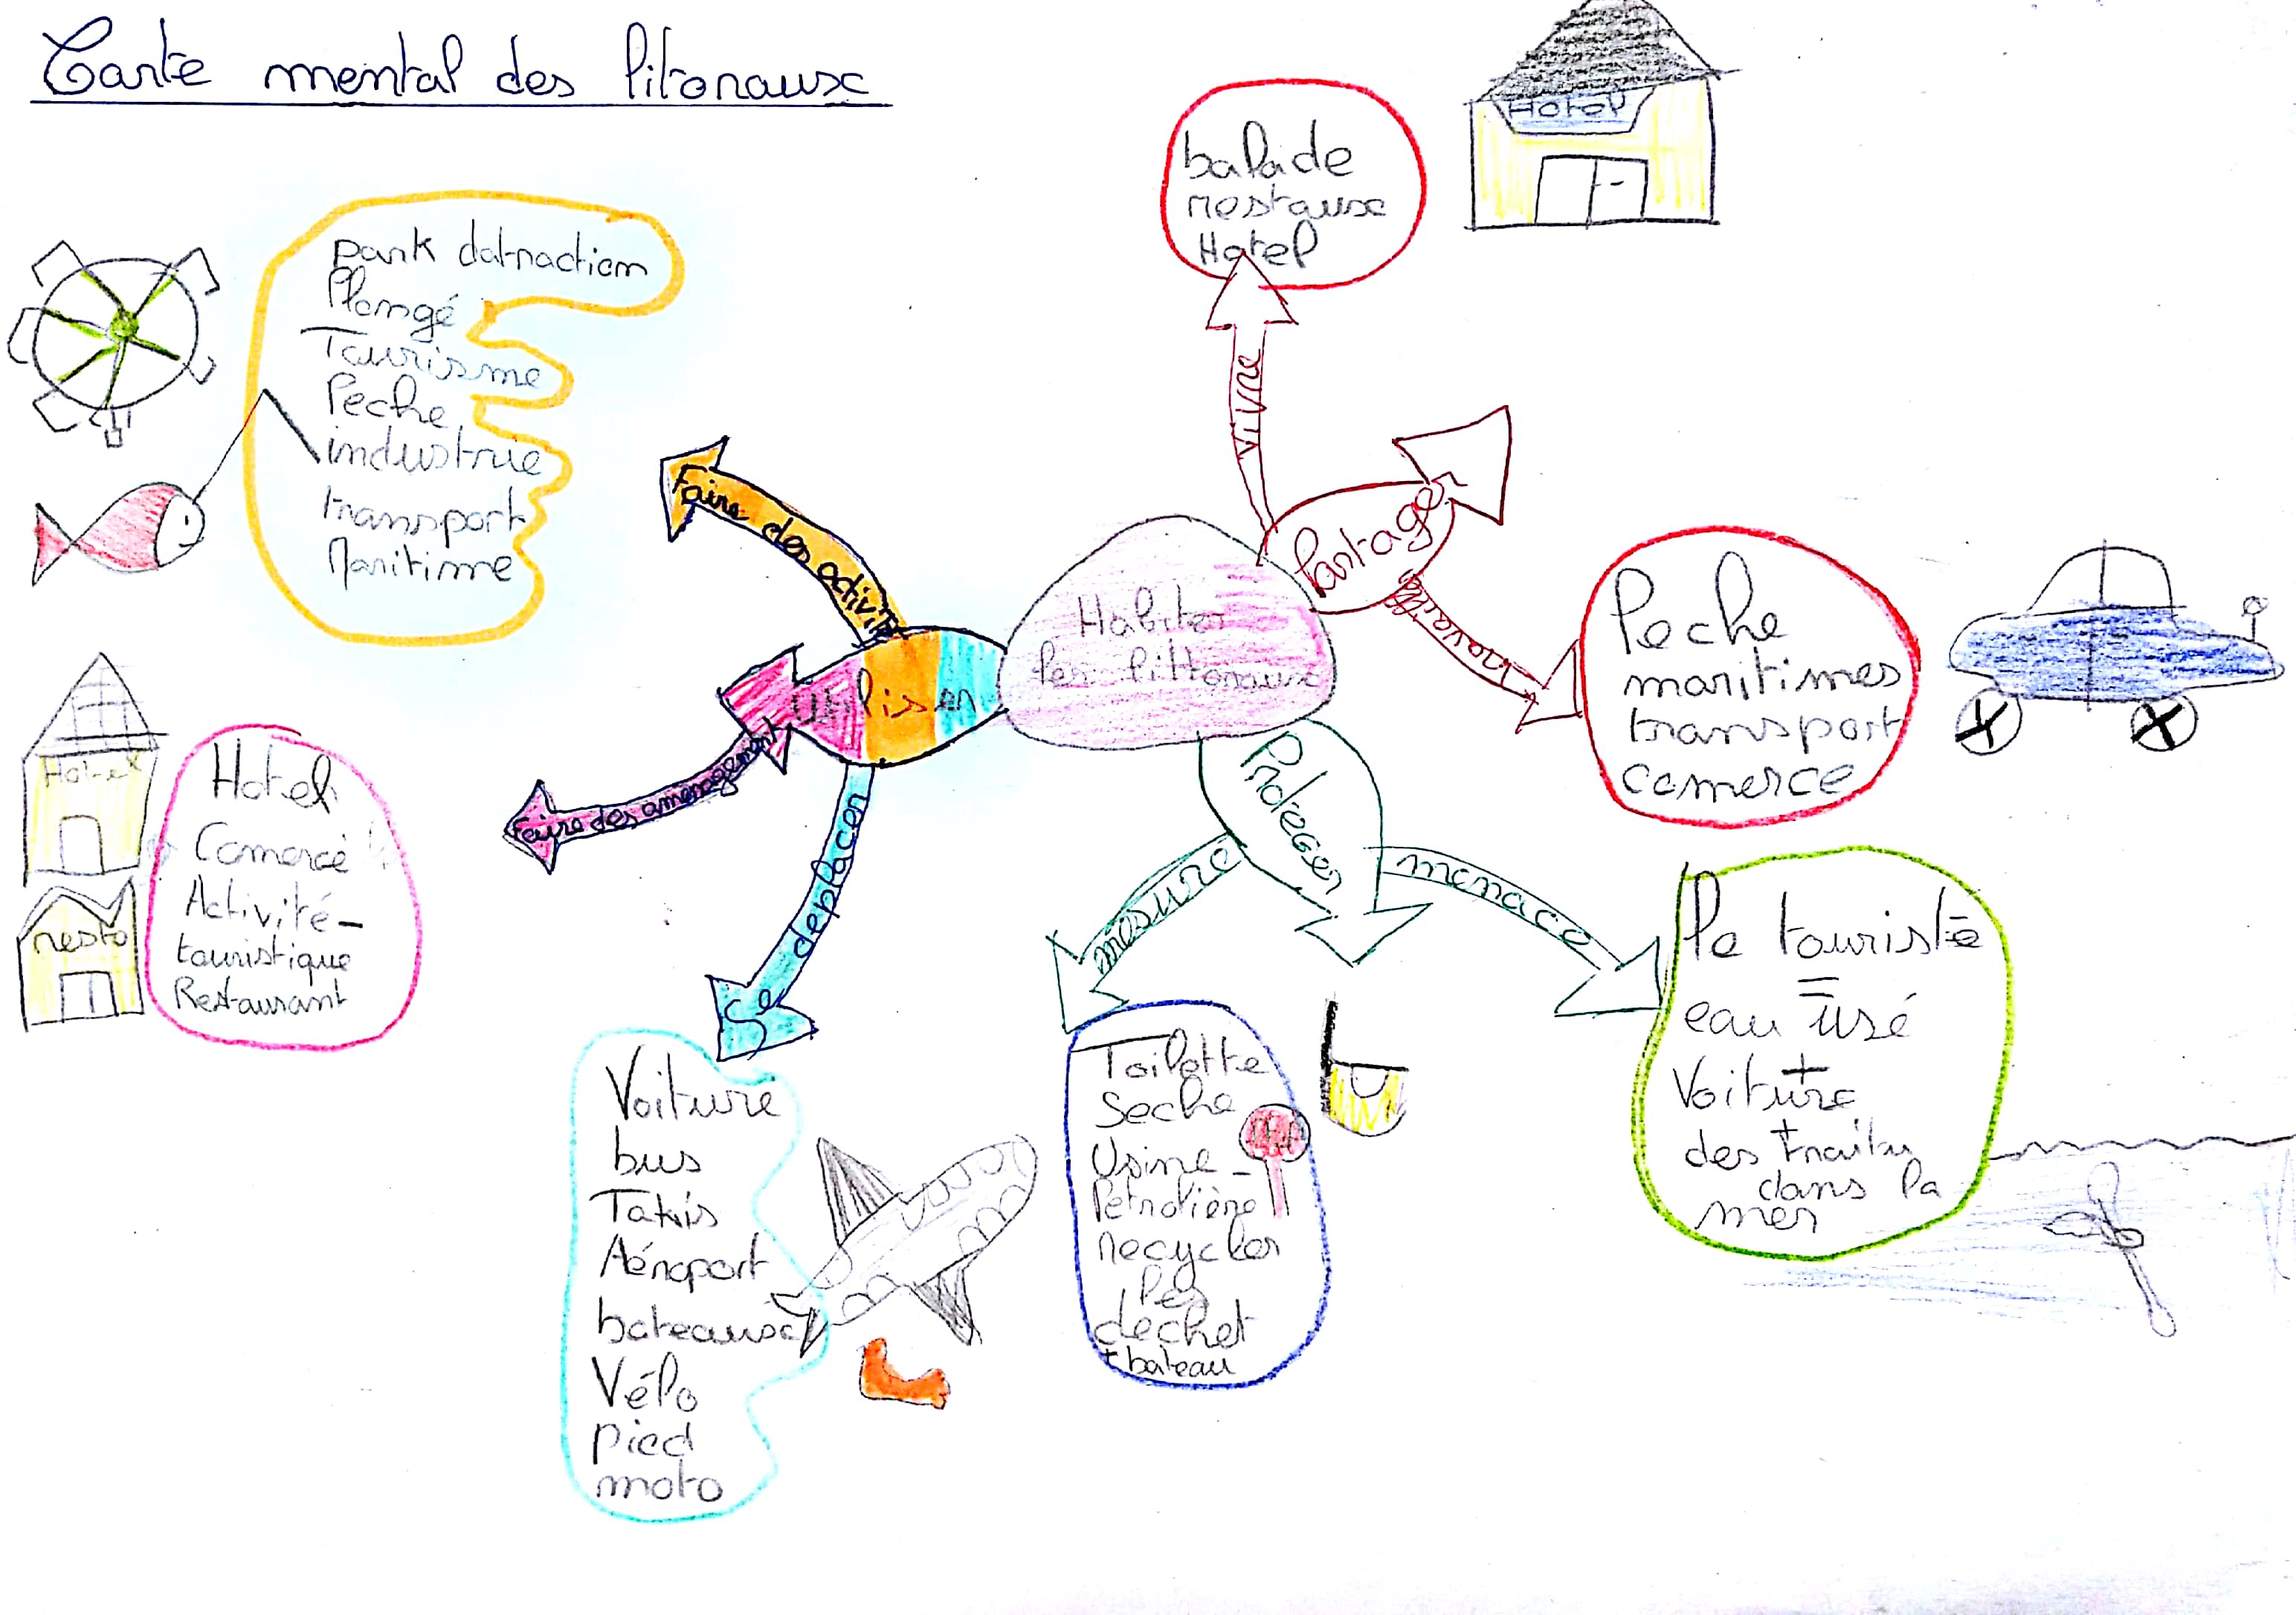 Carte mental des litoraux
balade
restaux
Hotel
Hotel
park datraction
Plongé
Tourisme
Peche
industrie
transport
Maritime
Vivre
Partager
travailler
Peche
maritimes
transport
comerce
Habiter
les littoraux
Utilisser
Faire des activité
Faire des amenagement
Se deplacer
Hotel
resto
Hotel
Comerce
Activité-
touristique
Restaurant
Proteger
mesure
menace
Voiture
bus
Taxis
Aéroport
bateaux
Vélo
pied
moto
Toilette
seche
Usine-
Petrolière
recycler
les
dechet
+ bateau
le touriste
=
eau usé
+
Voiture
+
des traitu
dans la
mer